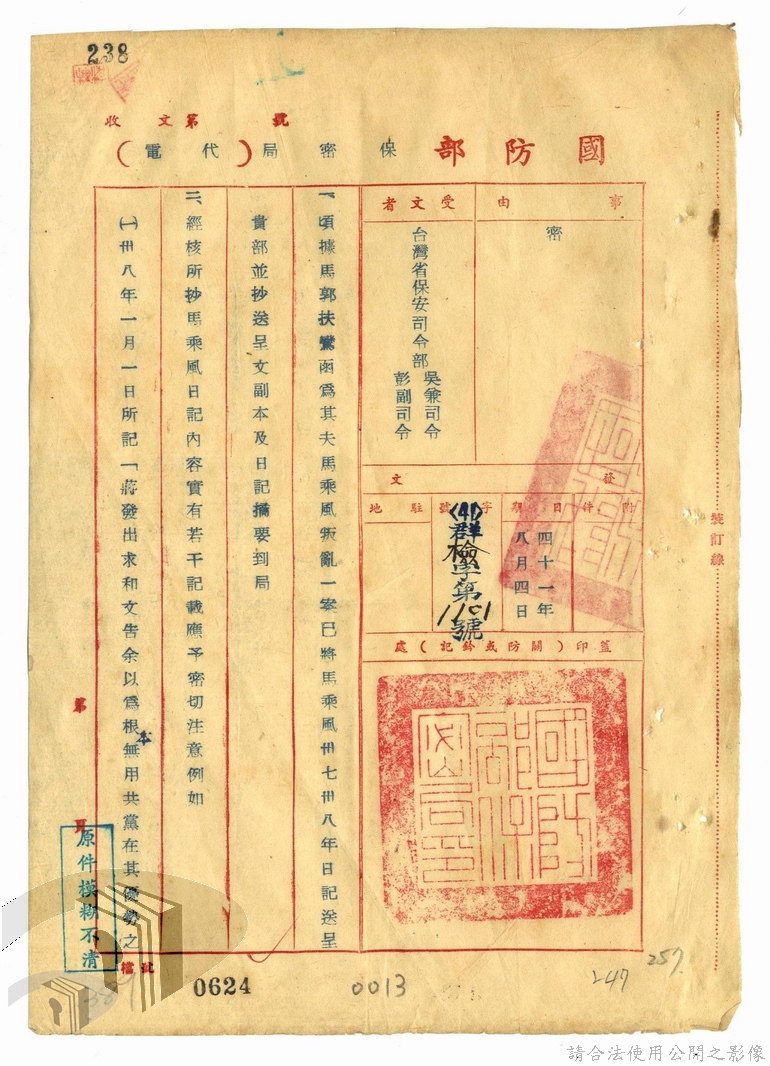 238
收文第號
國防部保密局(代電)
事由
密
受文者
台灣省保安司令部
吳兼司令
彭副司令
發文
附件
日期
四十一年
八月四日
字號
(41)群檢字第1101號
駐地
蓋印(關防或鈐記)處
國防部保密局印
一、頃據馬郭扶鸞函為其夫馬乘風叛亂一案已將馬乘風卅七卅八年日記送呈
貴部並抄送呈文副本及日記摘要到局
二、經核所抄馬乘風日記內容實有若干記載應予密切注意例如
㈠卅八年一月一日所記「蔣發出求和文告余以為根本無用共黨在其優勢之
第頁
裝訂線
原件模糊不清
檔
0624
0013
247
257
請合法使用公開之影像